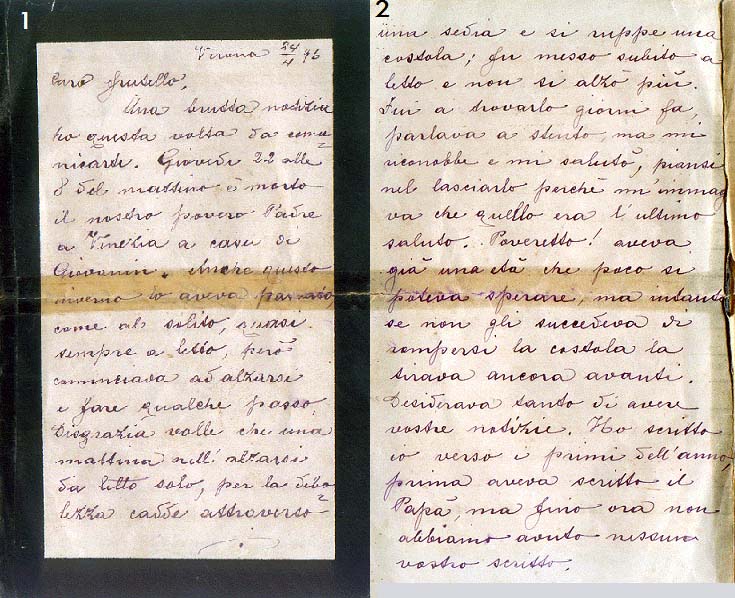 1
Verona 24/4 96
Caro fratello,
Una brutta notizia
ho questa volta da comu=
nicarti. Giovedì 22 alle
8 del mattino è morto
il nostro povero Padre
a Venezia a casa di
Giovanin. Anche questo
inverno lo aveva passato,
come al solito, quasi
sempre a letto, però
cominciava ad alzarsi
e fare qualche passo.
Disgrazia volle che una
mattina nell'alzarsi
da letto solo, per la debo=
lezza cadde attraverso=
2
una sedia e si ruppe una
costola; fu messo subito a
letto e non si alzò più.
Fui a trovarlo giorni fa,
parlava a stento, ma mi
riconobbe e mi salutò, piansi
nel lasciarlo perchè m'immag
va che quello era l'ultimo
saluto. Poveretto! aveva
già una età che poco si
poteva sperare, ma intanto
se non gli succedeva di
rompersi la costola la
tirava ancora avanti.
Desiderava tanto di avere
vostre notizie. Ho scritto
io verso i primi dell'anno,
prima aveva scritto il
Papà, ma fino ora non
abbiamo avuto nessun
vostro scritto.